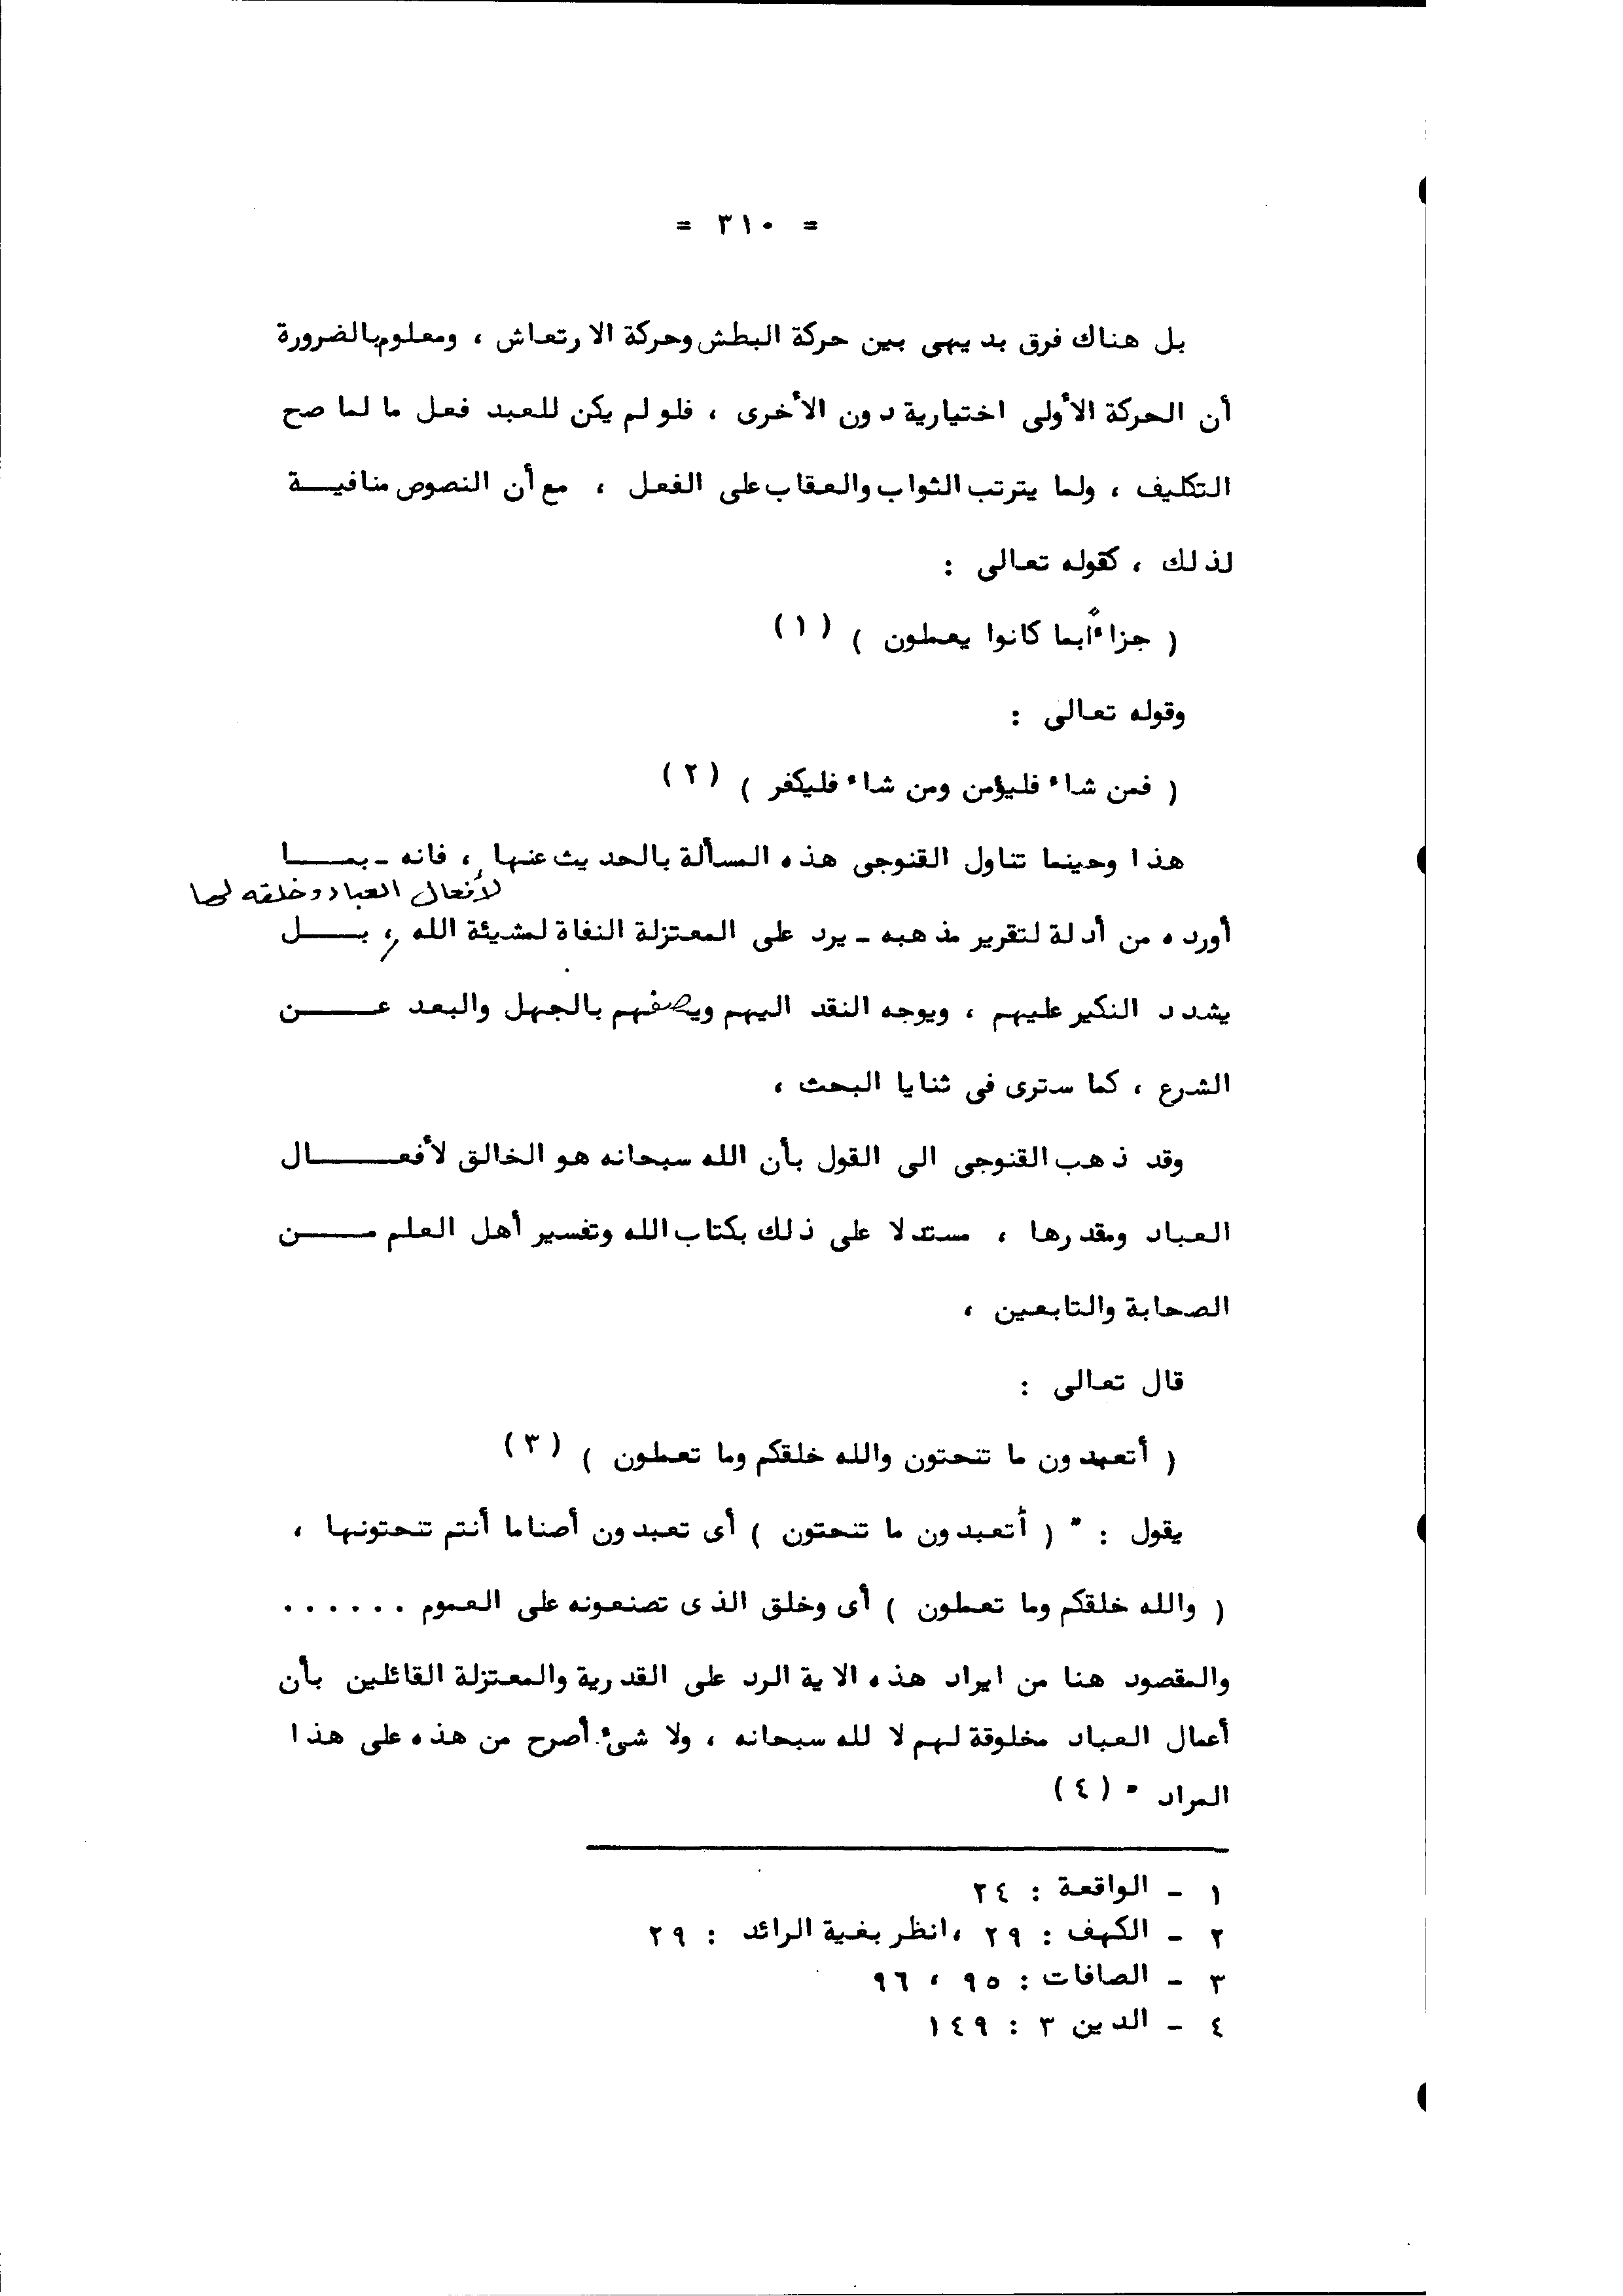 = ٣١٠ =
بل هناك فرق بديهى بين حركة البطش وحركة الارتعاش ، ومعلوم بالضرورة
أن الحركة الأولى اختيارية دون الأخرى ، فلو لم يكن للعبد فعل ما لما صح
التكليف ، ولما يترتب الثواب والعقاب على الفعل ، مع أن النصوص منافيـــة
لذلك ، كقوله تعالى :
( جزاءً بما كانوا يعملون ) (١)
وقوله تعالى :
( فمن شاء فليؤمن ومن شاء فليكفر ) (٢)
هذا وحينما تناول القنوجى هذه المسألة بالحديث عنها ، فانه ـ بمـــا
لأفعال العباد وخلقه لها
أورده من أدلة لتقرير مذهبه ـ يرد على المعتزلة النفاة لمشيئة الله ، بـــل
يشدد النكير عليهم ، ويوجه النقد اليهم ويصفهم بالجهل والبعد عـــن
الشرع ، كما سترى فى ثنايا البحث ،
وقد ذهب القنوجى الى القول بأن الله سبحانه هو الخالق لأفعـــال
العباد ومقدرها ، مستدلا على ذلك بكتاب الله وتفسير أهل العلم مـــن
الصحابة والتابعين ،
قال تعالى :
( أتعبدون ما تنحتون والله خلقكم وما تعملون ) (٣)
يقول : " ( أتعبدون ما تنحتون ) أى تعبدون أصناما أنتم تنحتونها ،
( والله خلقكم وما تعملون ) أى وخلق الذى تصنعونه على العموم ......
والمقصود هنا من ايراد هذه الاية الرد على القدرية والمعتزلة القائلين بأن
أعمال العباد مخلوقة لهم لا لله سبحانه ، ولا شئ أصرح من هذه على هذا
المراد " (٤)
١ - الواقعة : ٢٤
٢ - الكهف : ٢٩ ، انظر بغية الرائد : ٢٩
٣ - الصافات : ٩٥ ، ٩٦
٤ - الدين ٣ : ١٤٩